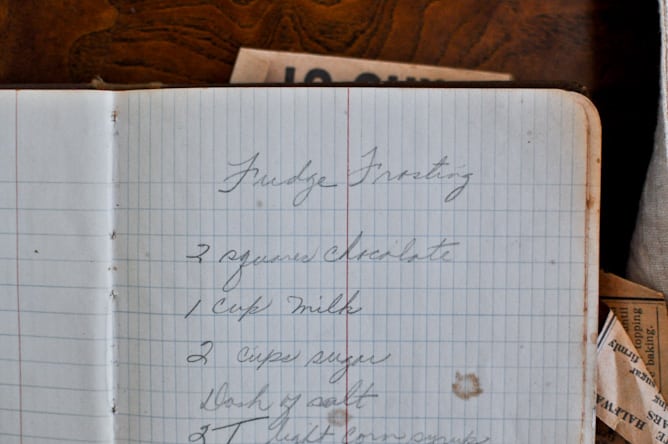 Fudge Frosting
2 squares chocolate
1 cup milk
2 cups sugar
Dash of salt
2 T light corn syrup
topping
baking.
sugar
firmly
HALFWA